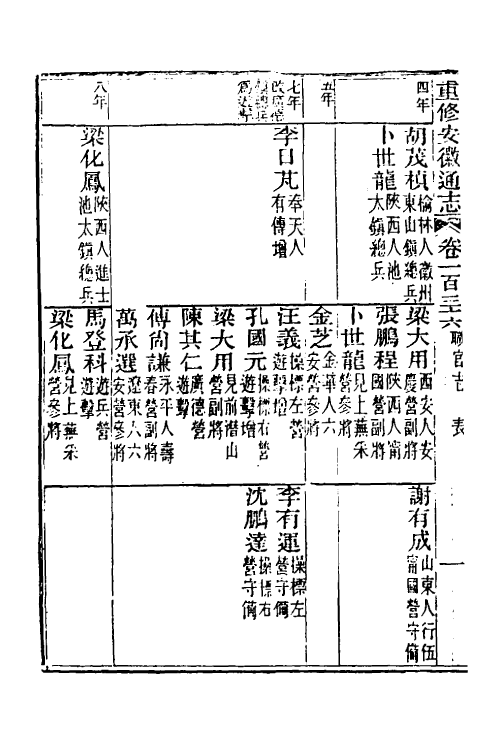 重修安徽通志 卷一百三十六 職官志 表 一
四年
胡茂楨 榆林人徽州東山鎮總兵
卜世龍 陝西人池太鎮總兵
梁大用 西安人安慶營副將
張鵬程 陝西人甯國營副將
卜世龍 見上蕪采營參將
謝有成 山東人行伍甯國營守備
五年
金芝 金華人六安營參將
七年
李日芃 奉天人有傳增
汪義 操標左營遊擊增
孔國元 操標右營遊擊增
梁大用 見前潛山營副將
陳其仁 廣德營遊擊
傅尙謙 永平人壽春營副將
萬承選 遼東人六安營參將
李有運 操標左營守備
沈鵬達 操標右營守備
八年
梁化鳳 陝西人進士池太鎮總兵
馬登科 遊兵營遊擊
梁化鳳 見上蕪采營參將